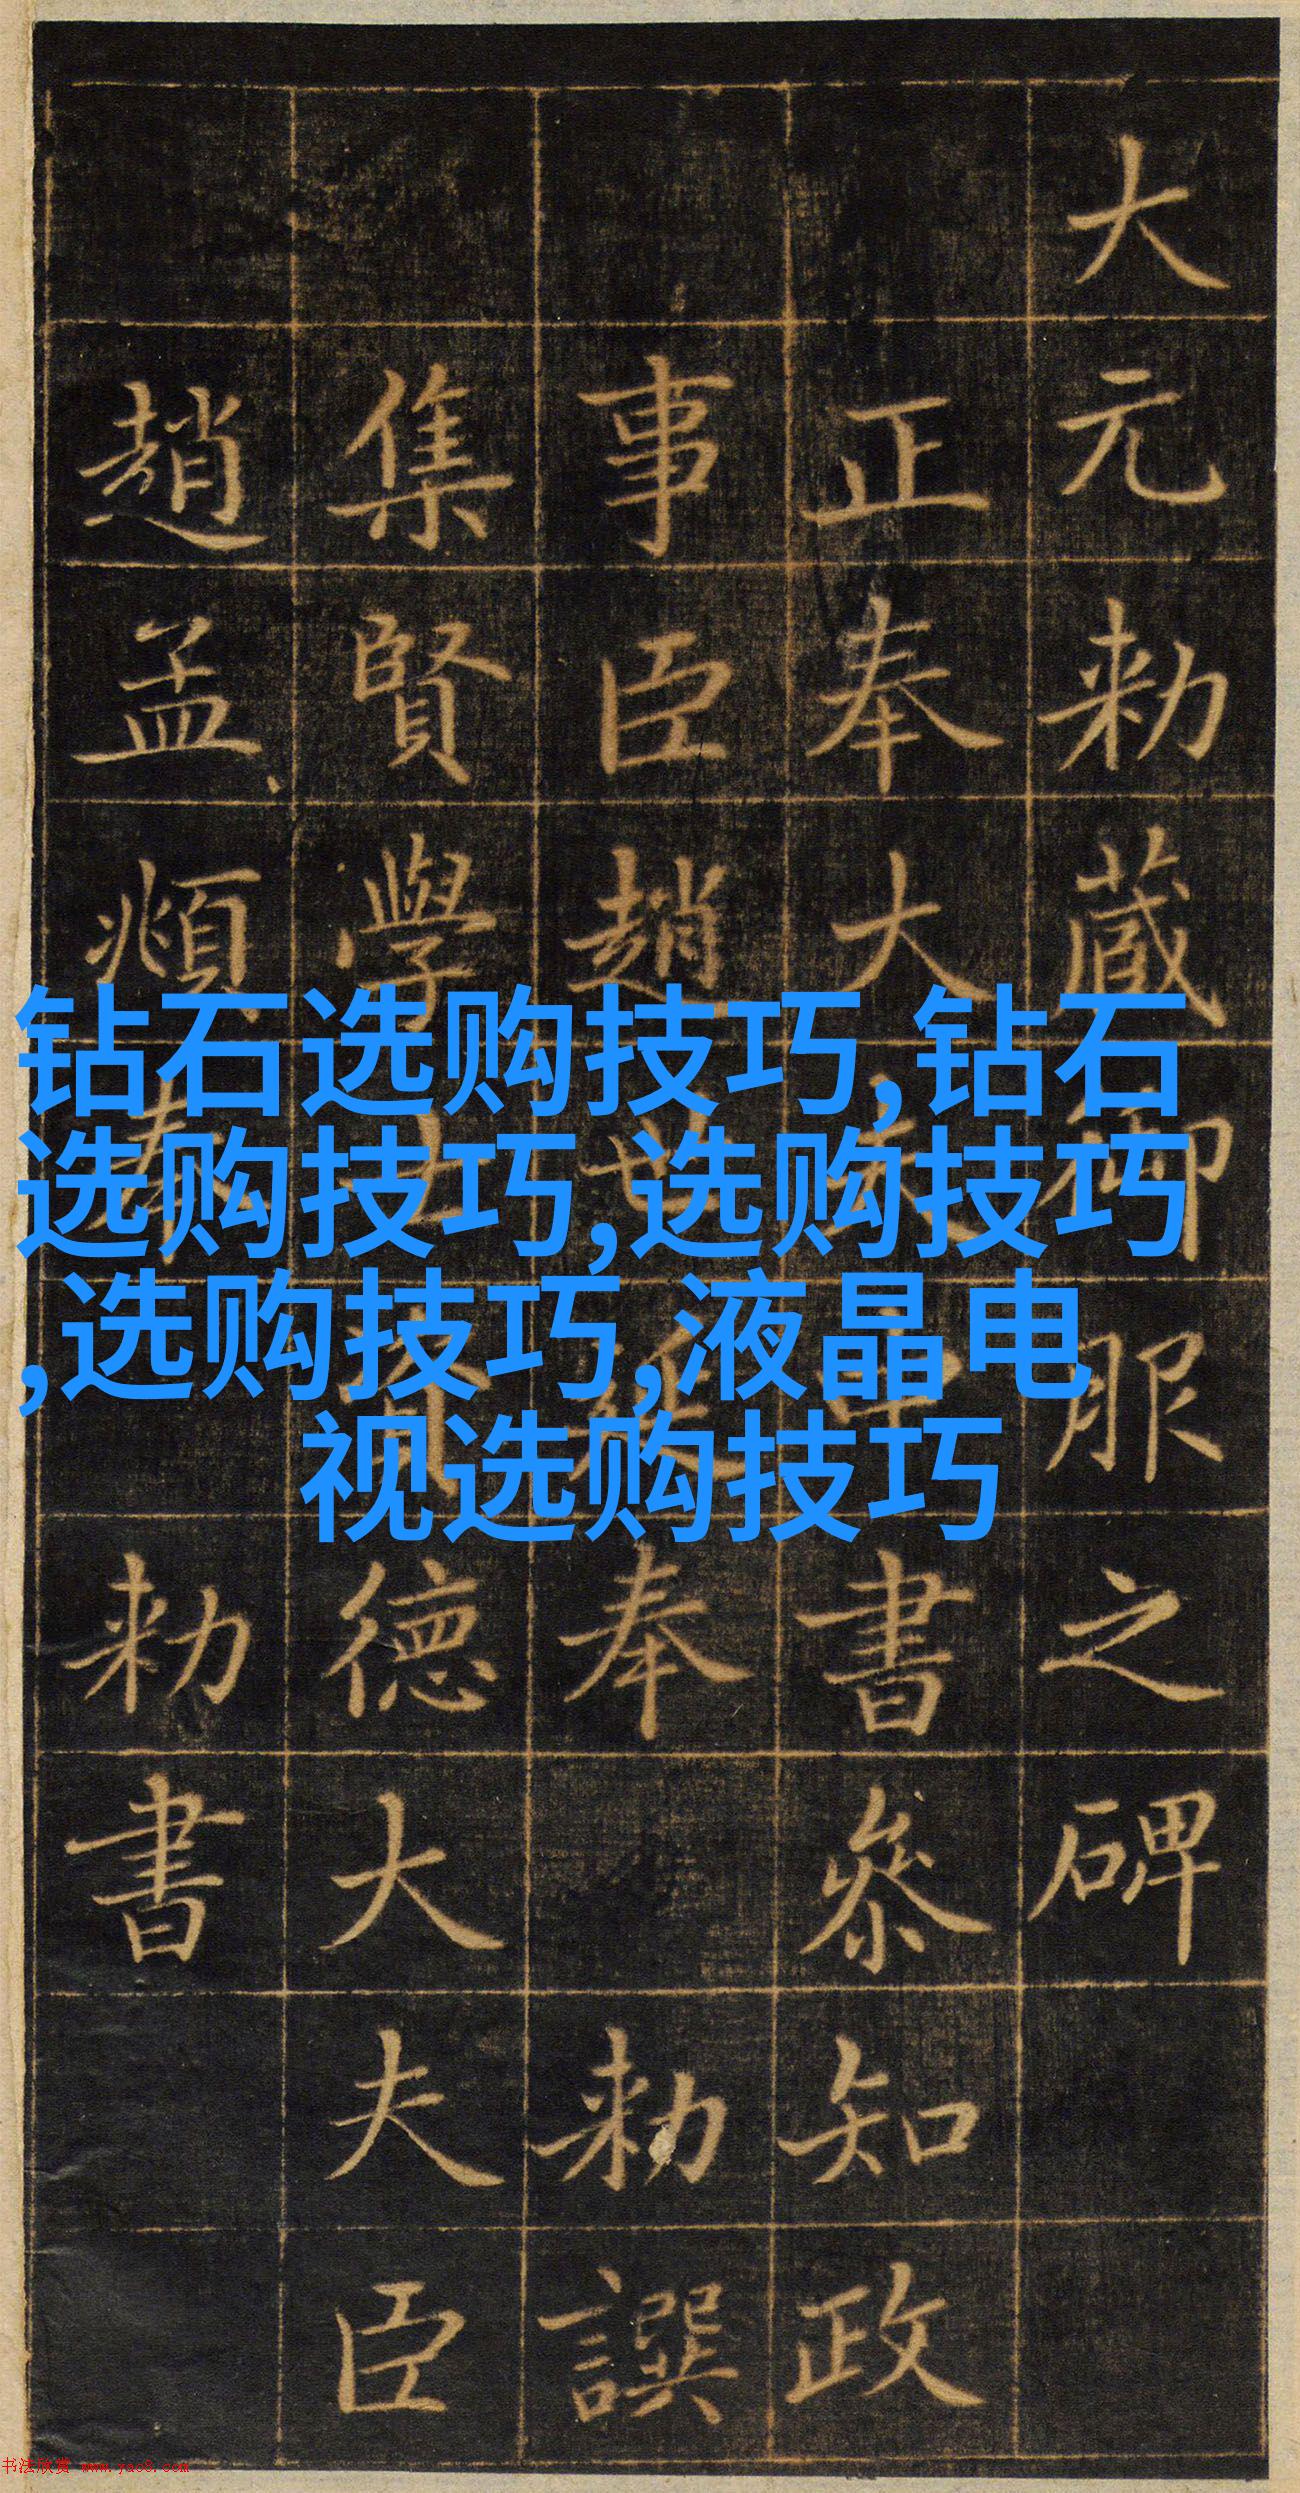 大元勑蔵御服之碑
正奉大夫中書叅知政
事臣趙世延奉勑譔
集賢學士資德大夫臣
趙孟頫奉勑書
钻石选购技巧,钻石
选购技巧,选购技巧
,选购技巧,液晶电
视选购技巧
书法欣赏 www.yac8.com